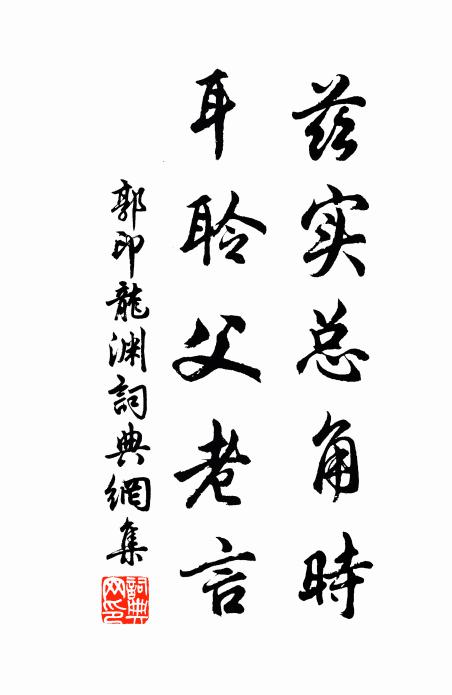 兹实总角時
耳聆父老言
郭印龍渊詞典網集
詞典网印